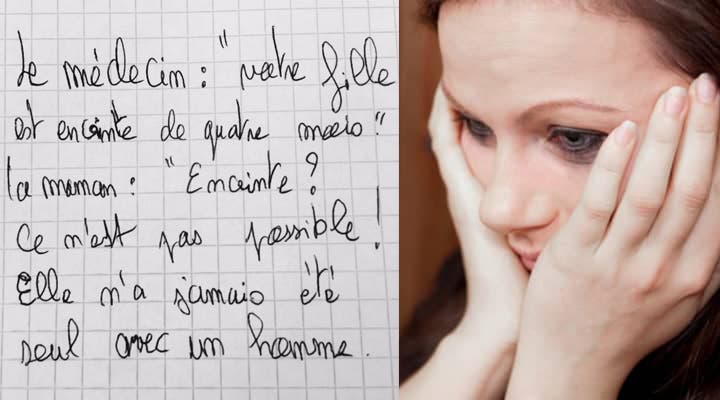 Le médecin : "votre fille
est enceinte de quatre mois"
la maman : "Enceinte ?
Ce n'est pas possible !
Elle n'a jamais été
seul avec un homme.